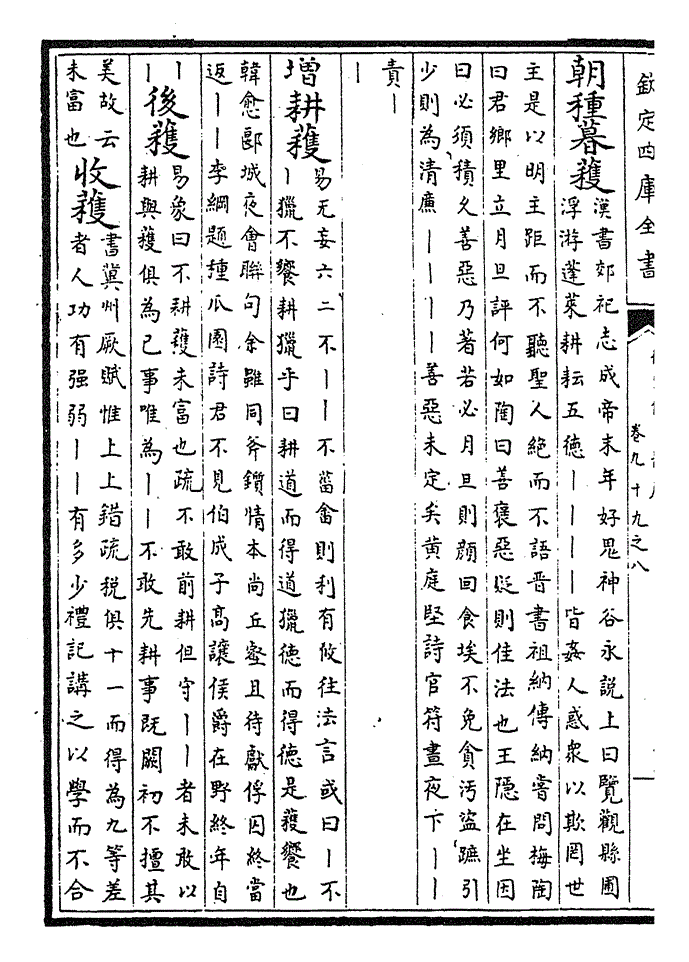 欽定四庫全書
卷九十九之八
朝種暮穫
漢書郊祀志成帝末年好鬼神谷永説上曰覽觀縣圃
浮游蓬萊耕耘五德丨丨丨丨皆姦人惑衆以欺罔世
主是以明主距而不聽聖人絶而不語晉書祖納傳納嘗問梅陶
曰君鄉里立月旦評何如陶曰善褒惡貶則佳法也王隱在坐因
曰必須積久善惡乃著若必月旦則顔回食埃不免貪汚盜蹠引
少則為清廉丨丨丨丨善惡未定矣黄庭堅詩官符晝夜下丨丨
責丨
丨
增耕穫
易无妄六二不丨丨不菑畬則利有攸往法言或曰丨不
丨獵不饗耕獵乎曰耕道而得道獵德而得德是穫饗也
韓愈郾城夜會聯句余雖同斧鑕情本尚丘壑且待獻俘囚終當
返丨丨李綱題種瓜園詩君不見伯成子高讓侯爵在野終年自
丨
丨
後穫
易象曰不耕穫未富也疏不敢前耕但守丨丨者未敢以
耕與穫俱為已事唯為丨丨不敢先耕事既闕初不擅其
美故云
未富也
收穫
書冀州厥賦惟上上錯疏税俱十一而得為九等差
者人功有强弱丨丨有多少禮記講之以學而不合